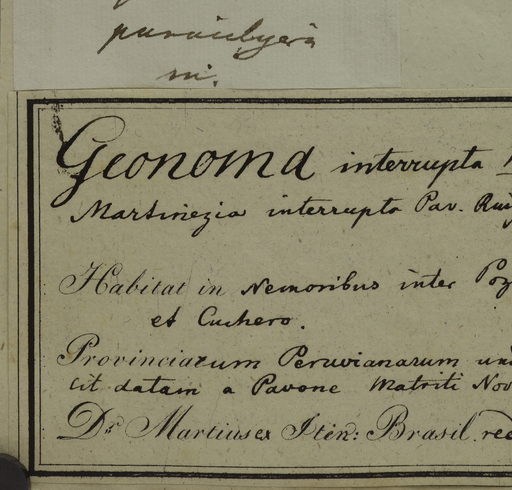 m.
Geonoma interrupta
Martinezia interrupta Pav. Ruiz
Habitat in Nemoribus inter Poz
et Cuchero.
Provinciarum Peruvianarum und
cit datam a Pavone Matriti Nov
Dr. Martius ex Itin: Brasil. red